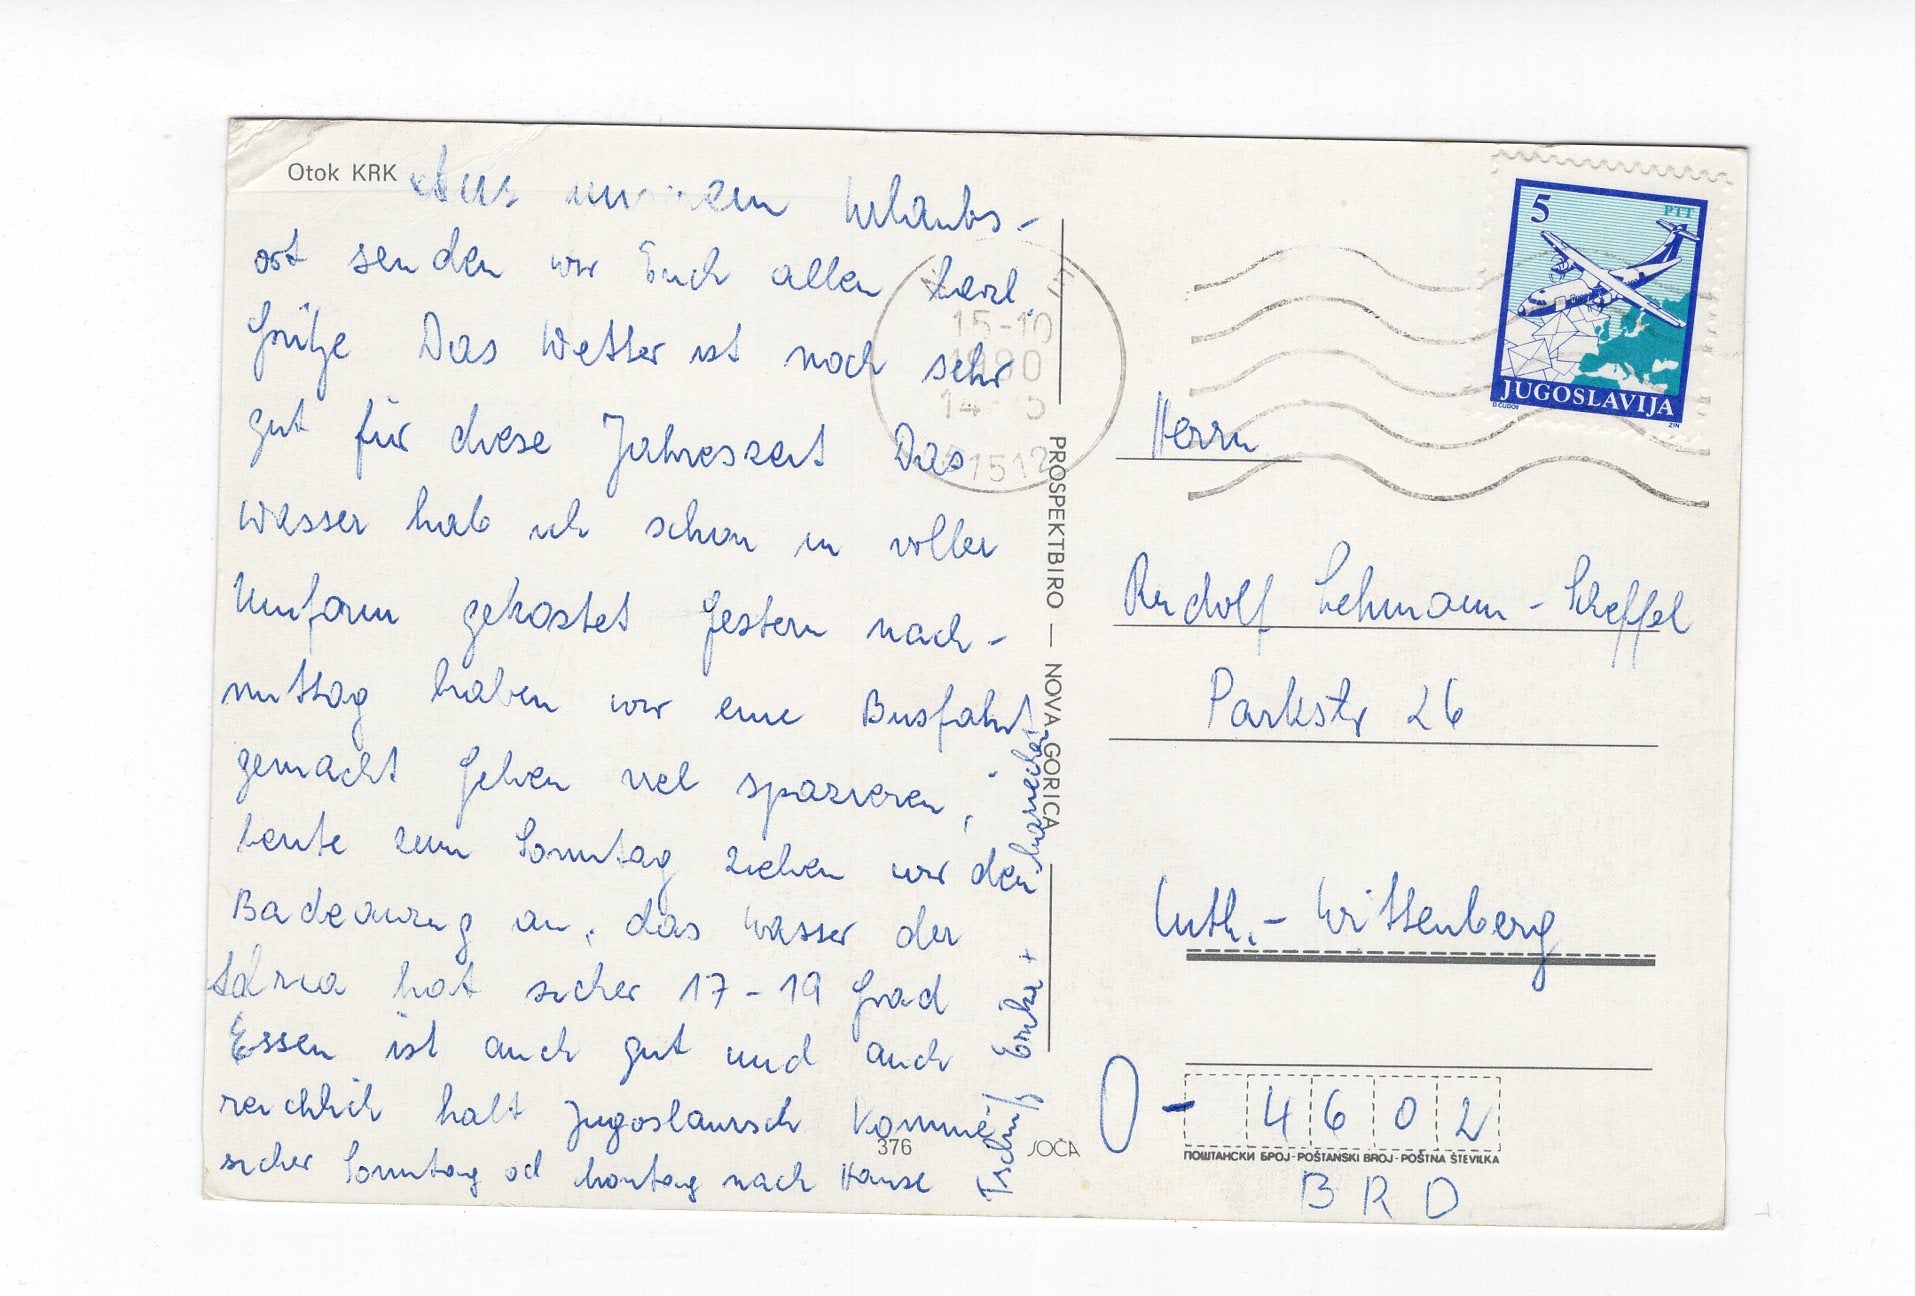 Otok KRK
Aus unserem Urlaubs-
ort senden wir Euch allen herzl.
Grüße Das Wetter ist noch sehr
gut für diese Jahreszeit Das
Wasser hab ich schon in voller
Uniform gekostet Gestern nach-
mittag haben wir eine Busfahrt
gemacht Gehen viel spazieren,
heute zum Sonntag ziehen wir den
Badeanzug an, das Wasser der
Adria hat sicher 17-19 Grad
Essen ist auch gut und auch
reichlich halt Jugoslawisch Komme
sicher Sonntag od Montag nach Hause
Tschüß Erika +
376
SOČA
PROSPEKTBIRO — NOVA GORICA
15-10
1990
51512
5
PTT
JUGOSLAVIJA
Herrn
Rudolf Lehmann-Scheffel
Parkstr 26
Luth.-Wittenberg
O-4602
ПОШТАНСКИ БРОЈ-POŠTANSKI BROJ-POŠTNA ŠTEVILKA
BRD